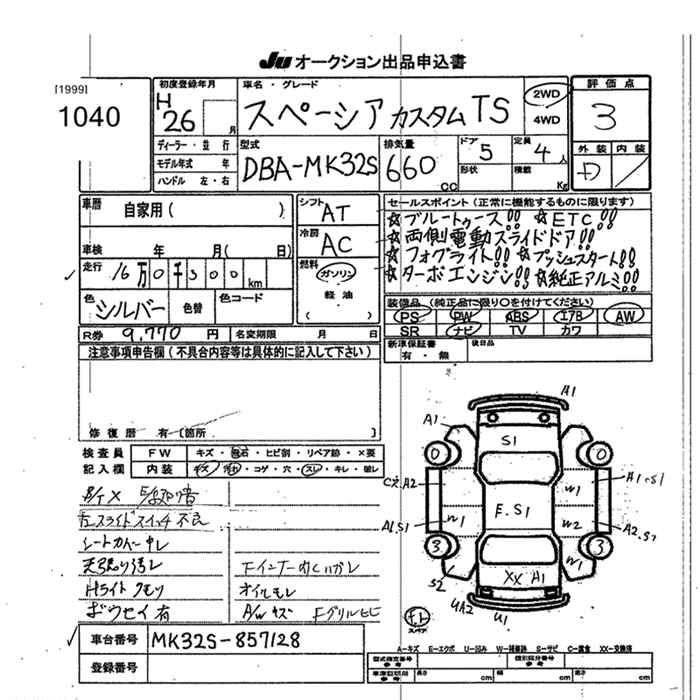 JU オークション出品申込書
[1999]
1040
初度登録年月
H 26 月
車名・グレード
スペーシア カスタム TS
2WD
4WD
評価点
3
外装 内装
D
ディーラー・並行
モデル年式 年
ハンドル 左・右
型式
DBA-MK32S
排気量
660 CC
ドア
5
形状
定員
4人
積載
Kg
車歴
自家用( )
車検 年 月( 日)
走行 16万0千300km
色 シルバー 色替 色コード
R券 9,770 円 名変期限 月 日
シフト
AT
冷房
AC
燃料
ガソリン
軽油
( )
セールスポイント(正常に機能するものに限ります)
☆ブルートゥース!! ☆ETC!!
☆両側電動スライドドア!!
☆フォグライト!! ☆プッシュスタート!!
☆ターボエンジン!! ☆純正アルミ!!
装備品(純正品に限り○を付けてください)
PS PW ABS エアB AW
SR ナビ TV カワ
新車保証書
有・無
後日品
注意事項申告欄(不具合内容等は具体的に記入して下さい)
修復歴 有(箇所 )
検査員
記入欄
FW キズ・飛石・ヒビ割・リペア跡・×要
内装 キズ・汚れ・コゲ・穴・スレ・キレ・破レ
左スライドスイッチ不良
シートカバー中レ
天張り汚レ
Hライトクモリ
ボウセイ有
オイルモレ
A/Wキズ Fグリルヒビ
車台番号 MK32S-857128
登録番号
A1
A1
S1
0
0
A2
A1・S1
W1
E.S1
W1
A1.S1
W2
A2.S1
3
3
W1
S2
XX A1
UA2
U1
スペア
A-キズ E-エクボ U-凹み W-補修跡 S-サビ C-腐食 XX-交換済
型式指定番号
参考
類別区分番号
参考
車庫証明用
参考
長さ cm 幅 cm 高さ cm